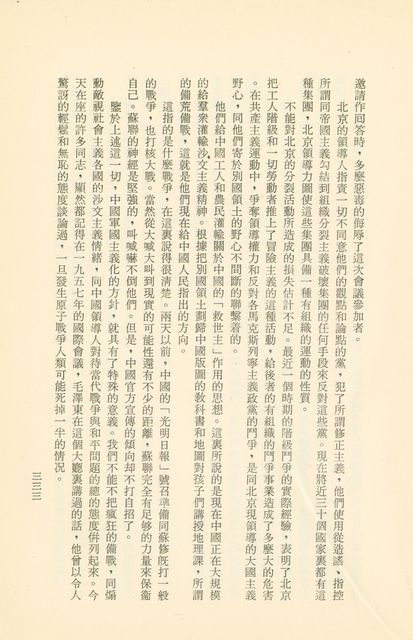 邀請作回答時，多麼惡毒的侮辱了這次會議參加者。
北京的領導人指責一切不同意他們的觀點和論點的黨，犯了所謂修正主義，他們使用從造謠、指控
所謂同帝國主義勾結到組織分裂主義破壞集團的任何手段來反對這些黨。現在將近三十個國家裏都有這
種集團，北京領導力圖使這些集團具備一種有組織的運動的性質。
不能對北京的分裂活動所造成的損失估計不足。最近一個時期的階級鬥爭的實際經驗，表明了北京
把工人階級和一切勞動者推上了冒險主義的這種活動，給後者的有組織的鬥爭事業造成了多麼大的危害
。在共產主義運動中，爭奪領導權力和反對各馬克斯列寧主義政黨的鬥爭，是同北京現領導的大國主義
野心，同他們寄於別國領土的野心不間斷的聯繫着的。
他們給中國工人和農民灌輸關於中國的「救世主」作用的思想。這裏所說的是現在中國正在大規模
的給羣衆灌輸沙文主義精神。根據把別國領土劃歸中國版圖的教科書和地圖對孩子們講授地理課，所謂
的備荒備戰，這就是他們現在給中國人民指出的方向。
這指的是什麼戰爭，在這裏說得很清楚。兩天以前，中國的「光明日報」號召準備同蘇修既打一般
的戰爭，也打核大戰。當然從大喊大叫到現實的可能性還有不少的距離，蘇聯完全有足够的力量來保衞
自己。蘇聯的神經是堅強的，叫喊嚇不倒他們。但是，中國官方宣傳的傾向却不打自招了。
鑒於上述這一切，中國軍國主義化的方針，就具有了特殊的意義。我們不能不把瘋狂的備戰，同煽
動敵視社會主義各國的沙文主義情緒，同中國領導人對待當代戰爭與和平問題的總的態度併列起來。今
天在座的許多同志，顯然都記得在一九五七年的國際會議，毛澤東在這個大廳裏講過的話，他曾以令人
驚訝的輕鬆和無恥的態度談論過，一旦發生原子戰爭人類可能死掉一半的情况。
三三三